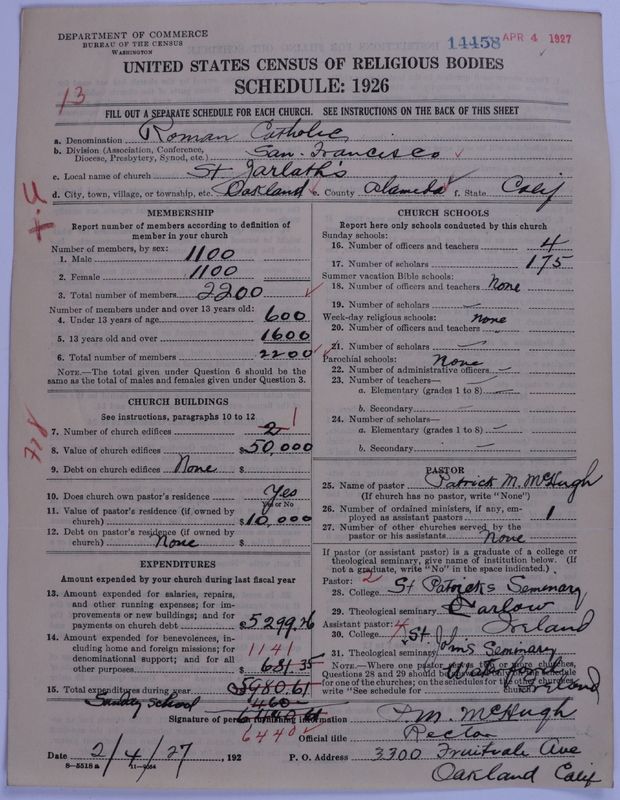 DEPARTMENT OF COMMERCE
BUREAU OF THE CENSUS
WASHINGTON
14458 APR 4 1927
UNITED STATES CENSUS OF RELIGIOUS BODIES
SCHEDULE: 1926
13
FILL OUT A SEPARATE SCHEDULE FOR EACH CHURCH. SEE INSTRUCTIONS ON THE BACK OF THIS SHEET
a. Denomination Roman Catholic
b. Division (Association, Conference, Diocese, Presbytery, Synod, etc.) San Francisco
c. Local name of church St Jarlath's
d. City, town, village, or township, etc. Oakland e. County Alameda f. State Calif
MEMBERSHIP
Report number of members according to definition of
member in your church
Number of members, by sex:
1. Male 1100
2. Female 1100
3. Total number of members 2200
Number of members under and over 13 years old:
4. Under 13 years of age 600
5. 13 years old and over 1600
6. Total number of members 2200
NOTE.—The total given under Question 6 should be
same as the total of males and females given under Question 3.
CHURCH BUILDINGS
See instructions, paragraphs 10 to 12
7. Number of church edifices 2 1
8. Value of church edifices $50,000
728
9. Debt on church edifices None $
10. Does church own pastor's residence Yes
Yes or No
11. Value of pastor's residence (if owned by
church) $10,000
12. Debt on pastor's residence (if owned by
church) None $
EXPENDITURES
Amount expended by your church during last fiscal year
13. Amount expended for salaries, repairs,
and other running expenses; for im-
provements or new buildings; and for
payments on church debt $5299.26
14. Amount expended for benevolences, in-
cluding home and foreign missions; for
denominational support; and for all
other purposes $ 681.35
1141
15. Total expenditures during year $5980.61
Sunday School 460
6440.61
6440
CHURCH SCHOOLS
Report here only schools conducted by this church
Sunday schools:
16. Number of officers and teachers 4
17. Number of scholars 175
Summer vacation Bible schools:
18. Number of officers and teachers None
19. Number of scholars —
Week-day religious schools: None
20. Number of officers and teachers —
21. Number of scholars —
Parochial schools: None
22. Number of administrative officers —
23. Number of teachers—
a. Elementary (grades 1 to 8) —
b. Secondary —
24. Number of scholars—
a. Elementary (grades 1 to 8) —
b. Secondary —
PASTOR
25. Name of pastor Patrick M. McHugh
(If church has no pastor, write "None")
26. Number of ordained ministers, if any, em-
ployed as assistant pastors 1
27. Number of other churches served by the
pastor or his assistants None
If pastor (or assistant pastor) is a graduate of a college or
theological seminary, give name of institution below. (If
not a graduate, write "No" in the space indicated.)
Pastor: 2
28. College St Patricks Seminary
29. Theological seminary Carlow
Ireland
Assistant pastor: 4
30. College St Johns Seminary
31. Theological seminary Waterford
Ireland
NOTE.—Where one pastor serves two or more churches,
Questions 28 and 29 should be answered only on the schedule
for one of the churches; on the schedules for the other churches
write "See schedule for church"
Signature of person furnishing information P. M. McHugh
Official title Rector
Date 2/4/27, 192 P. O. Address 3300 Fruitvale Ave
Oakland Calif
8—5518 a